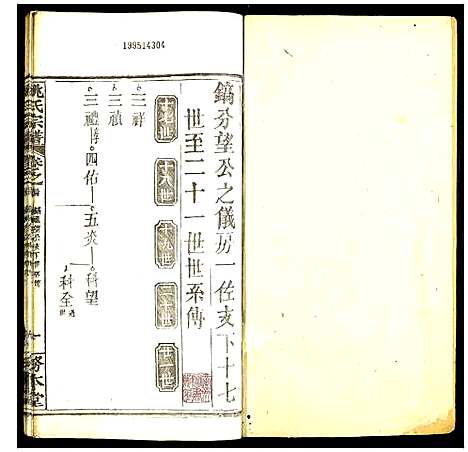 199514304
鎬分望公之儀房一佐支下十七
世至二十一世世系傳
十七世
十八世
十九世
二十世
廿一世
三祥
三禎
三禮 四佑 五炎 科望
科全
姚氏宗譜
務本堂